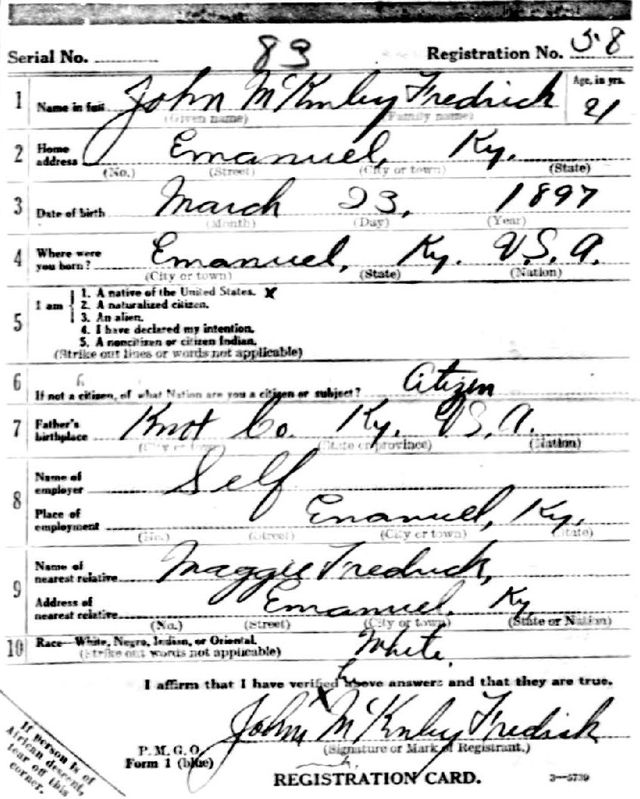 Serial No. 83 Registration No. 58
1 Name in full John McKnley Fredrick Age, in yrs. 21
(Given name) (Family name)
2 Home address Emanuel, Ky.
(No.) (Street) (City or town) (State)
3 Date of birth March 23, 1897
(Month) (Day) (Year)
4 Where were you born? Emanuel, Ky. U.S.A.
(City or town) (State) (Nation)
5 I am
1. A native of the United States. X
2. A naturalized citizen.
3. An alien.
4. I have declared my intention.
5. A noncitizen or citizen Indian.
(Strike out lines or words not applicable)
6 If not a citizen, of what Nation are you a citizen or subject? Citizen
7 Father's birthplace Knox Co. Ky. U.S.A.
(City or town) (State or province) (Nation)
8 Name of employer Self
Place of employment Emanuel, Ky.
(No.) (Street) (City or town) (State)
9 Name of nearest relative Maggie Fredrick,
Address of nearest relative Emanuel, Ky
(No.) (Street) (City or town) (State or Nation)
10 Race—White, Negro, Indian, or Oriental. White
(Strike out words not applicable)
I affirm that I have verified above answers and that they are true.
X
John McKnley Fredick
P. M. G. O. (Signature or Mark of Registrant.)
Form 1 (blue)
REGISTRATION CARD. 3—5739
If person is of
African descent,
tear off this
corner.